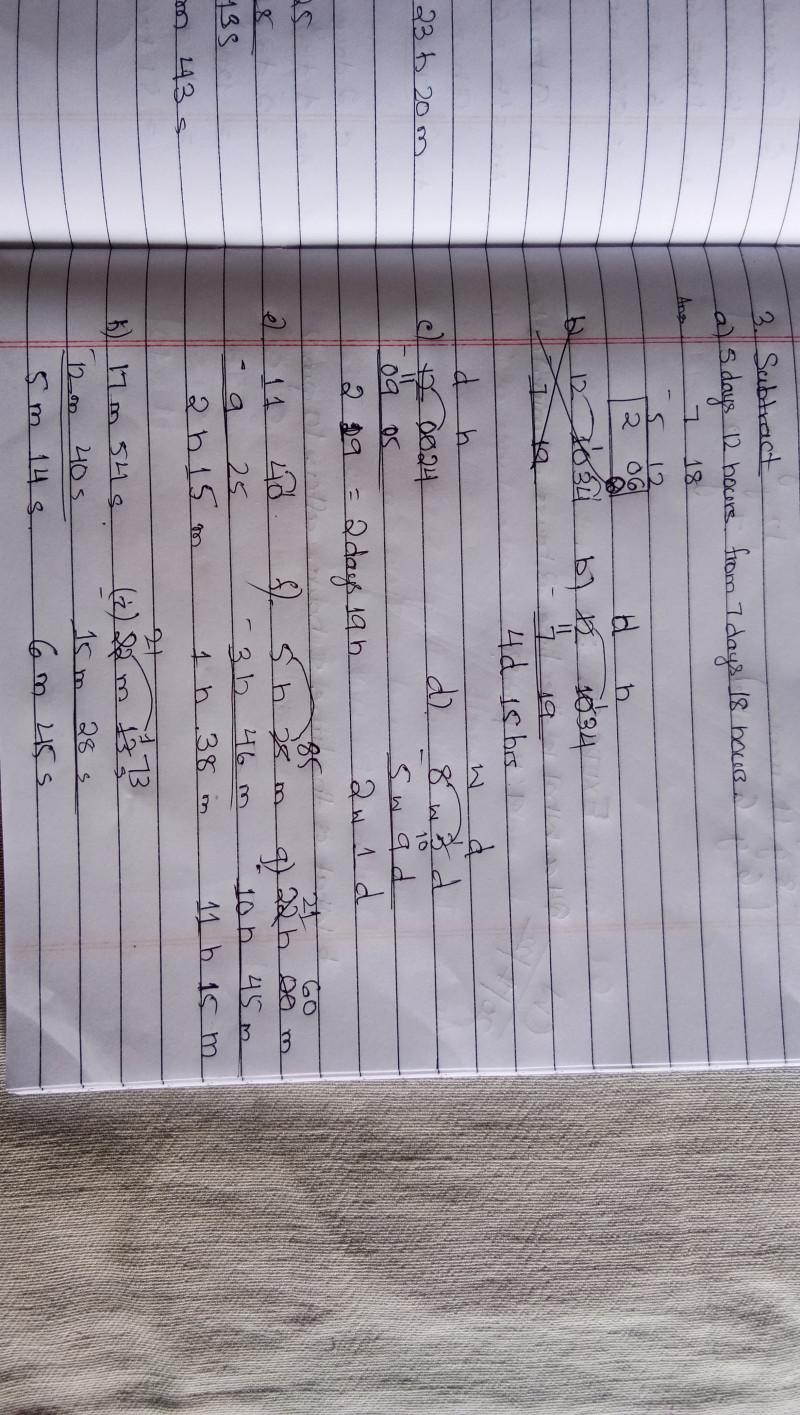 23 h 20 m
25
8
13 s
m 43 s
3. Subtract
a) 5 days 12 hours from 7 days 18 hours.
Ans 7 18
- 5 12
2 06
d h
b) 12 1034 b) 12 1034
11
- 7 19 - 7 19
4d 15 hrs
d h w d
c) 12 0024 d) 8 w 3 d
11 10
- 09 05 - 5 w 9 d
2 19 = 2 days 19 h 2 w 1 d
85 21 60
e) 11 40 f) 5 h 25 m g) 22 h 00 m
- 9 25 - 3 h 46 m 10 h 45 m
2 h 15 m 1 h 38 m 11 h 15 m
21 73
h) 17 m 54 s (i) 22 m 13 s
- 12 m 40 s - 15 m 28 s
5 m 14 s 6 m 45 s